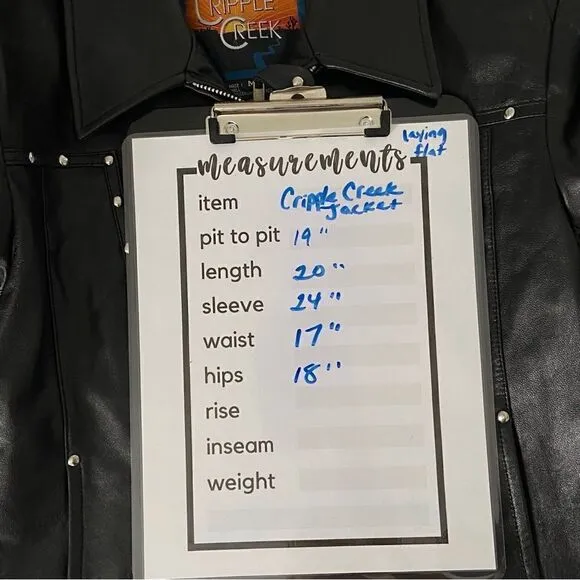 CRIPPLE
CREEK
M
measurements
laying
flat
item Cripple Creek
Jacket
pit to pit 19"
length 20"
sleeve 24"
waist 17"
hips 18"
rise
inseam
weight